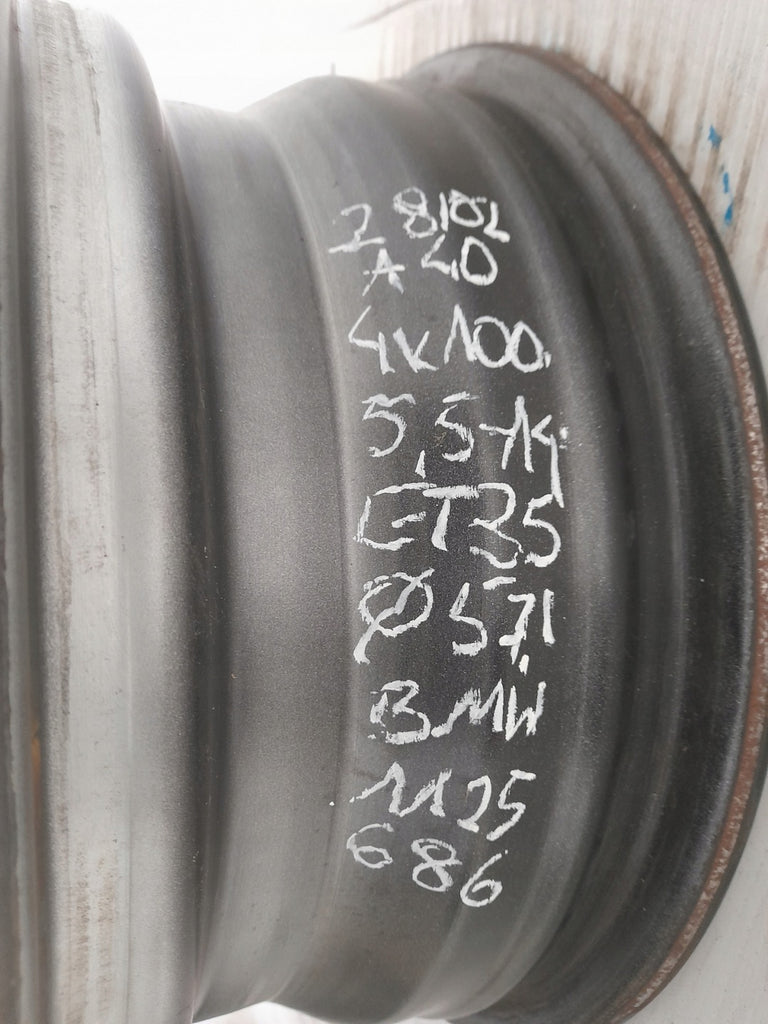 2 8102
A 40
4x100
5,5-14
ET35
Ø 57,1
BMW
1125
686